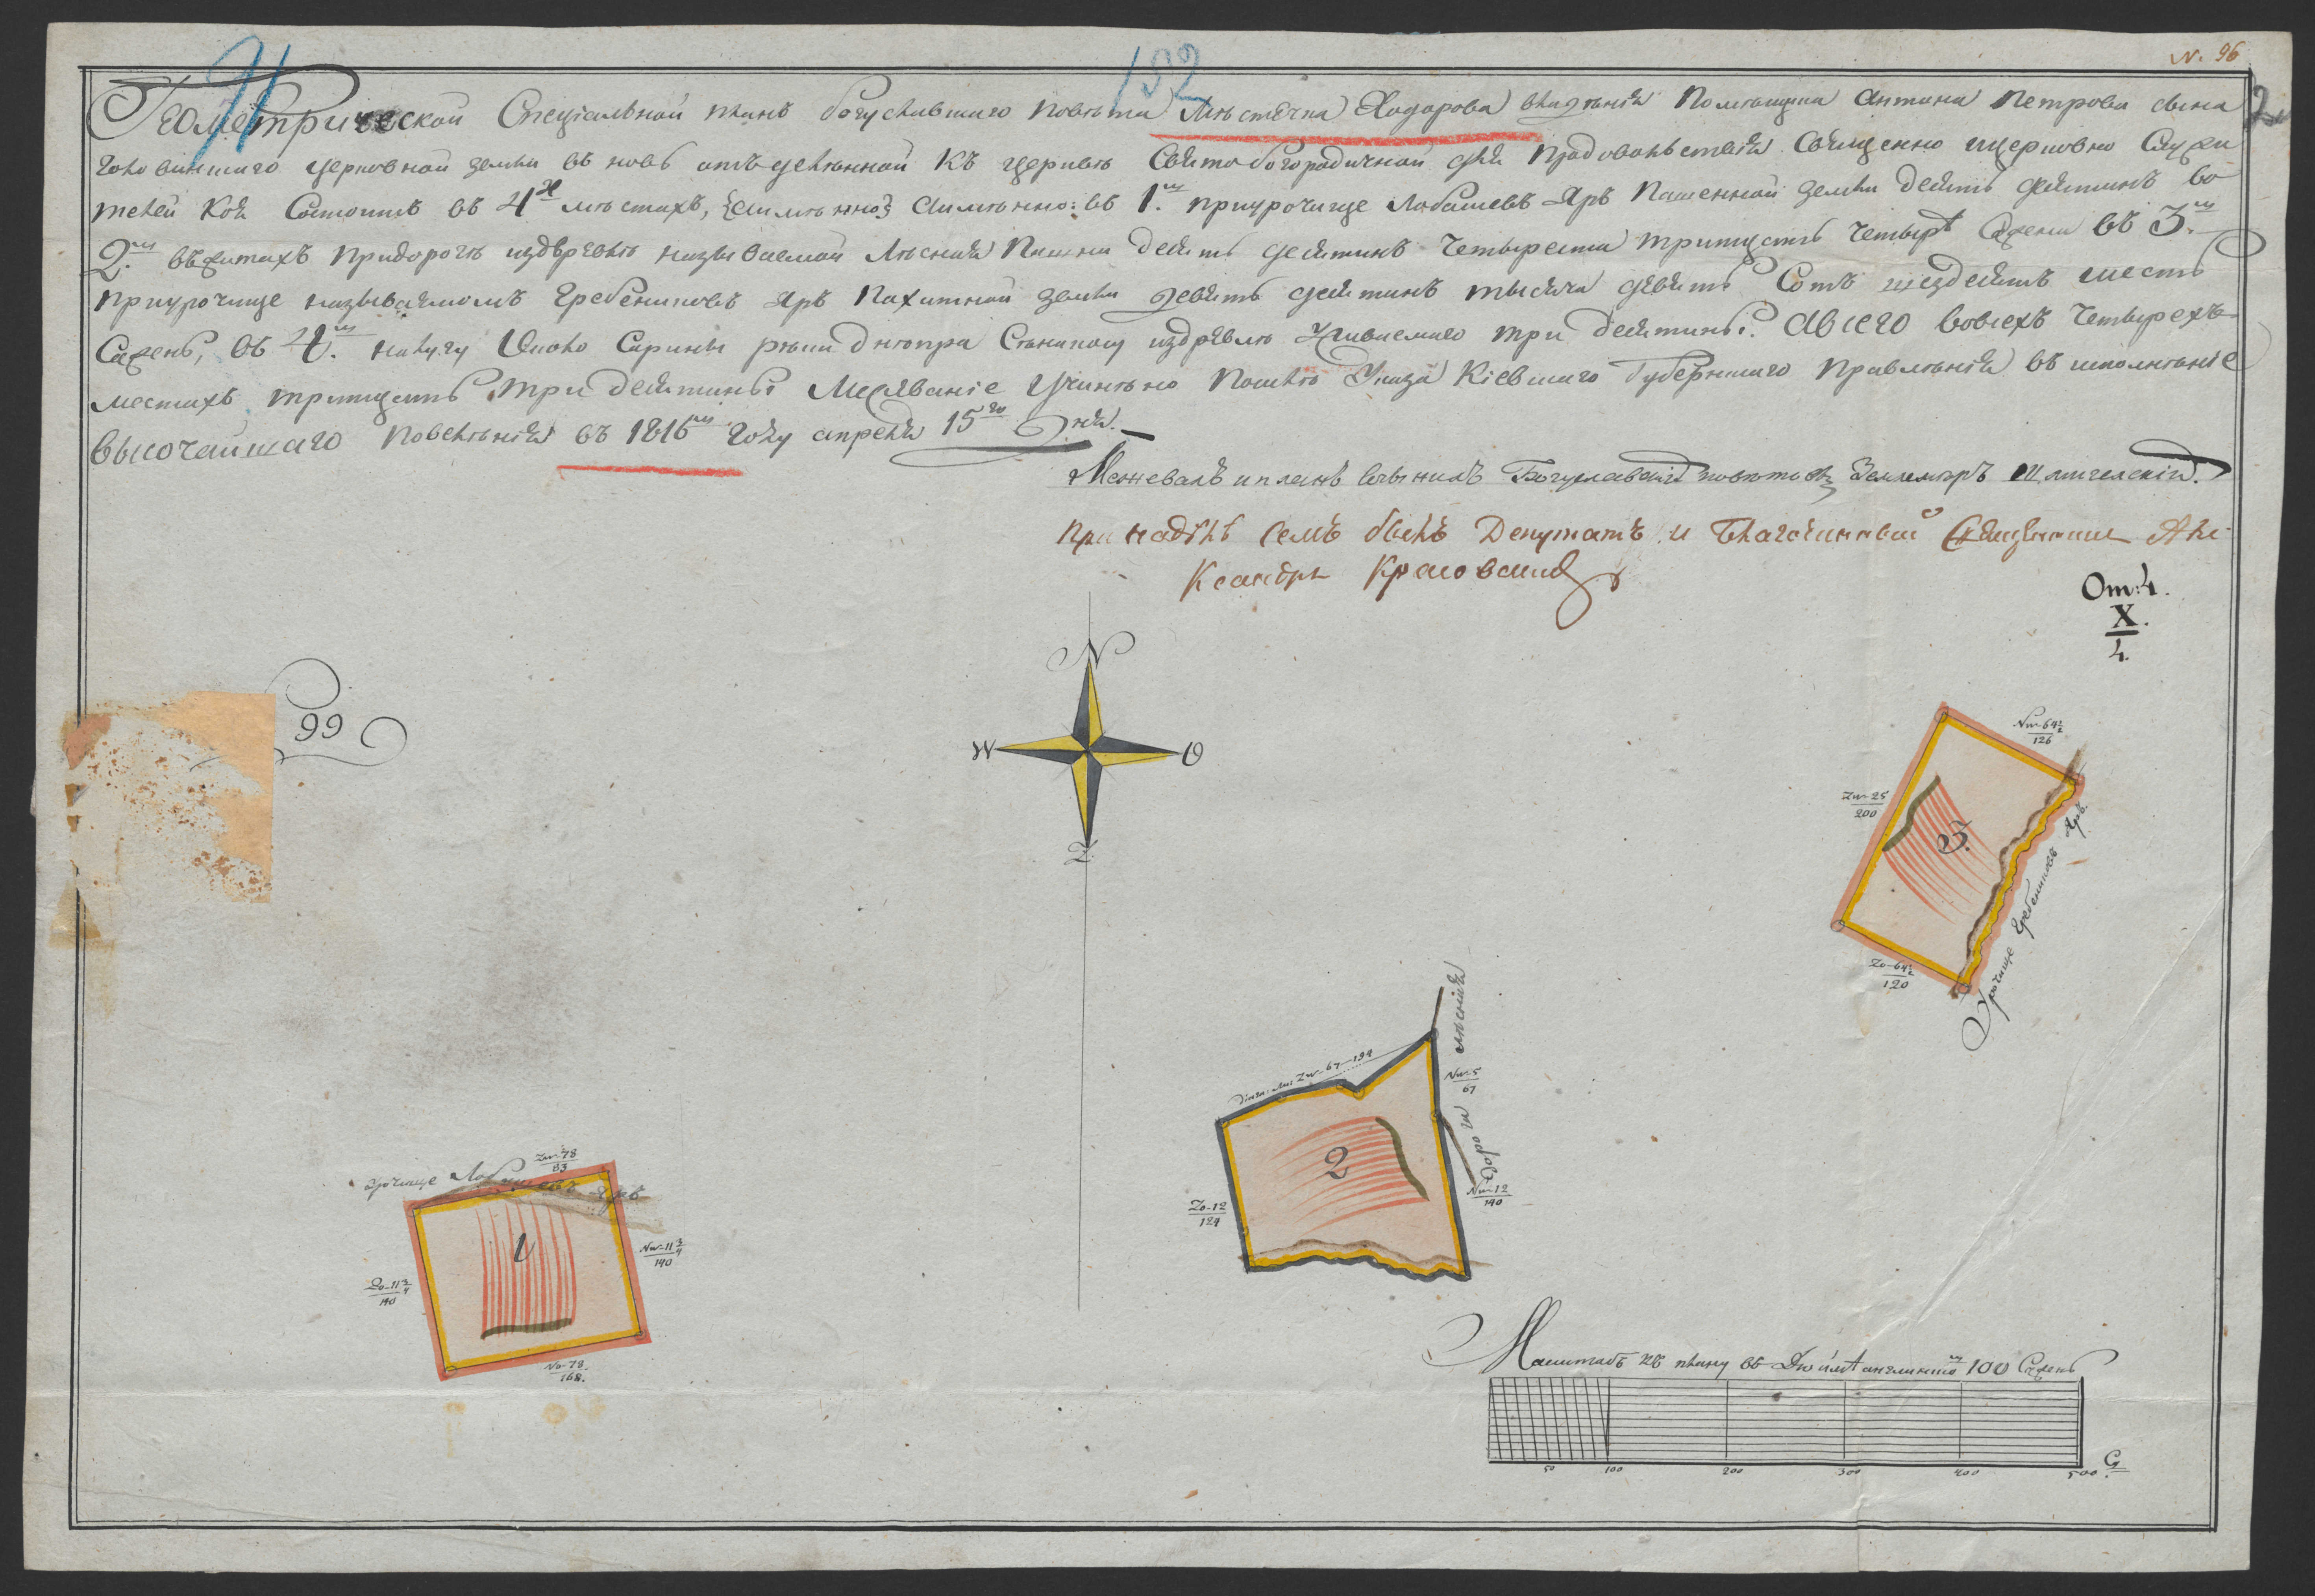 N. 96
71
192
2
Геометрической Спеціальной планъ богуславского Повѣта Мѣстечка Ходорова владѣнія Помѣщика Антона Петрова сына
Головинского церковной земли въ новь отъделѣнной къ церквѣ Святобогородичной для Продовольствія Священно ицерковно Служи
телей Коя Состоитъ въ 4х мѣстахъ, аимѣнно: въ 1.м приурочище Лобашевъ Яръ Пашенной земли десять десятинъ во
2.м Придорогѣ издревлѣ называемой Лѣсная Пашни десять десятинъ Четыреста тритцать Четырѣ Сажени въ 3.м
приурочище называемомъ Гребениковъ Яръ Пахатной земли девять десятинъ тысяча девять Сотъ шездесятъ шесть
Сажень, въ 4.м налугу Около рѣки днѣпра три десятины. Авсего вовсехъ Четырехъ
местахъ тритцать три десятины Межеваніе Учинѣно Посилѣ Указа Кіевского Губернского Правлѣнія въ исполнѣніе
высочайшаго Повелѣнія въ 1816м Году апреля 15го дня.
Межевалъ и планъ сочинилъ Богуславскій повѣтовы Землемѣръ
При надѣлѣ семъ былъ Депутатъ и Благочинный Священник Але
ксандръ Красовский
От: 4.
X.
4.
99
N
W
O
Z
Nw-64½
126
Zw-25
200
3.
Zo-64½
120
Урочище Гребениковъ Яръ.
Zw-67-194
Nw-5
67
2
дороги лѣсния
Zo-12
124
Nw-12
140
урочище Лобашевъ яръ
Zw-78
83
1
Nw-11¾
140
Zo-11¾
140
No-78.
168.
Масштабъ къ плану въ Дюймѣ англинскомъ 100 Сажень
50 100 200 300 400 500 С.